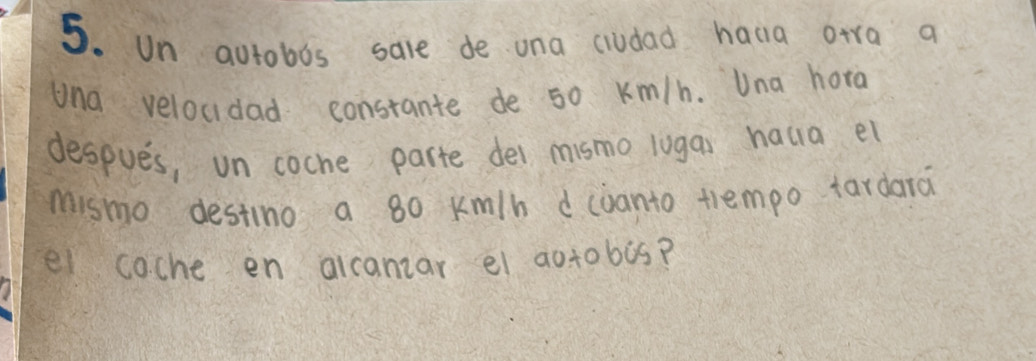 5. Un autobús sale de una ciudad hacia otra a
una velocidad constante de 50 Km/h. Una hora
después, un coche parte del mismo lugar hacia el
mismo destino a 80 Km/h ¿cuanto tiempo tardará
el coche en alcanzar el autobús?